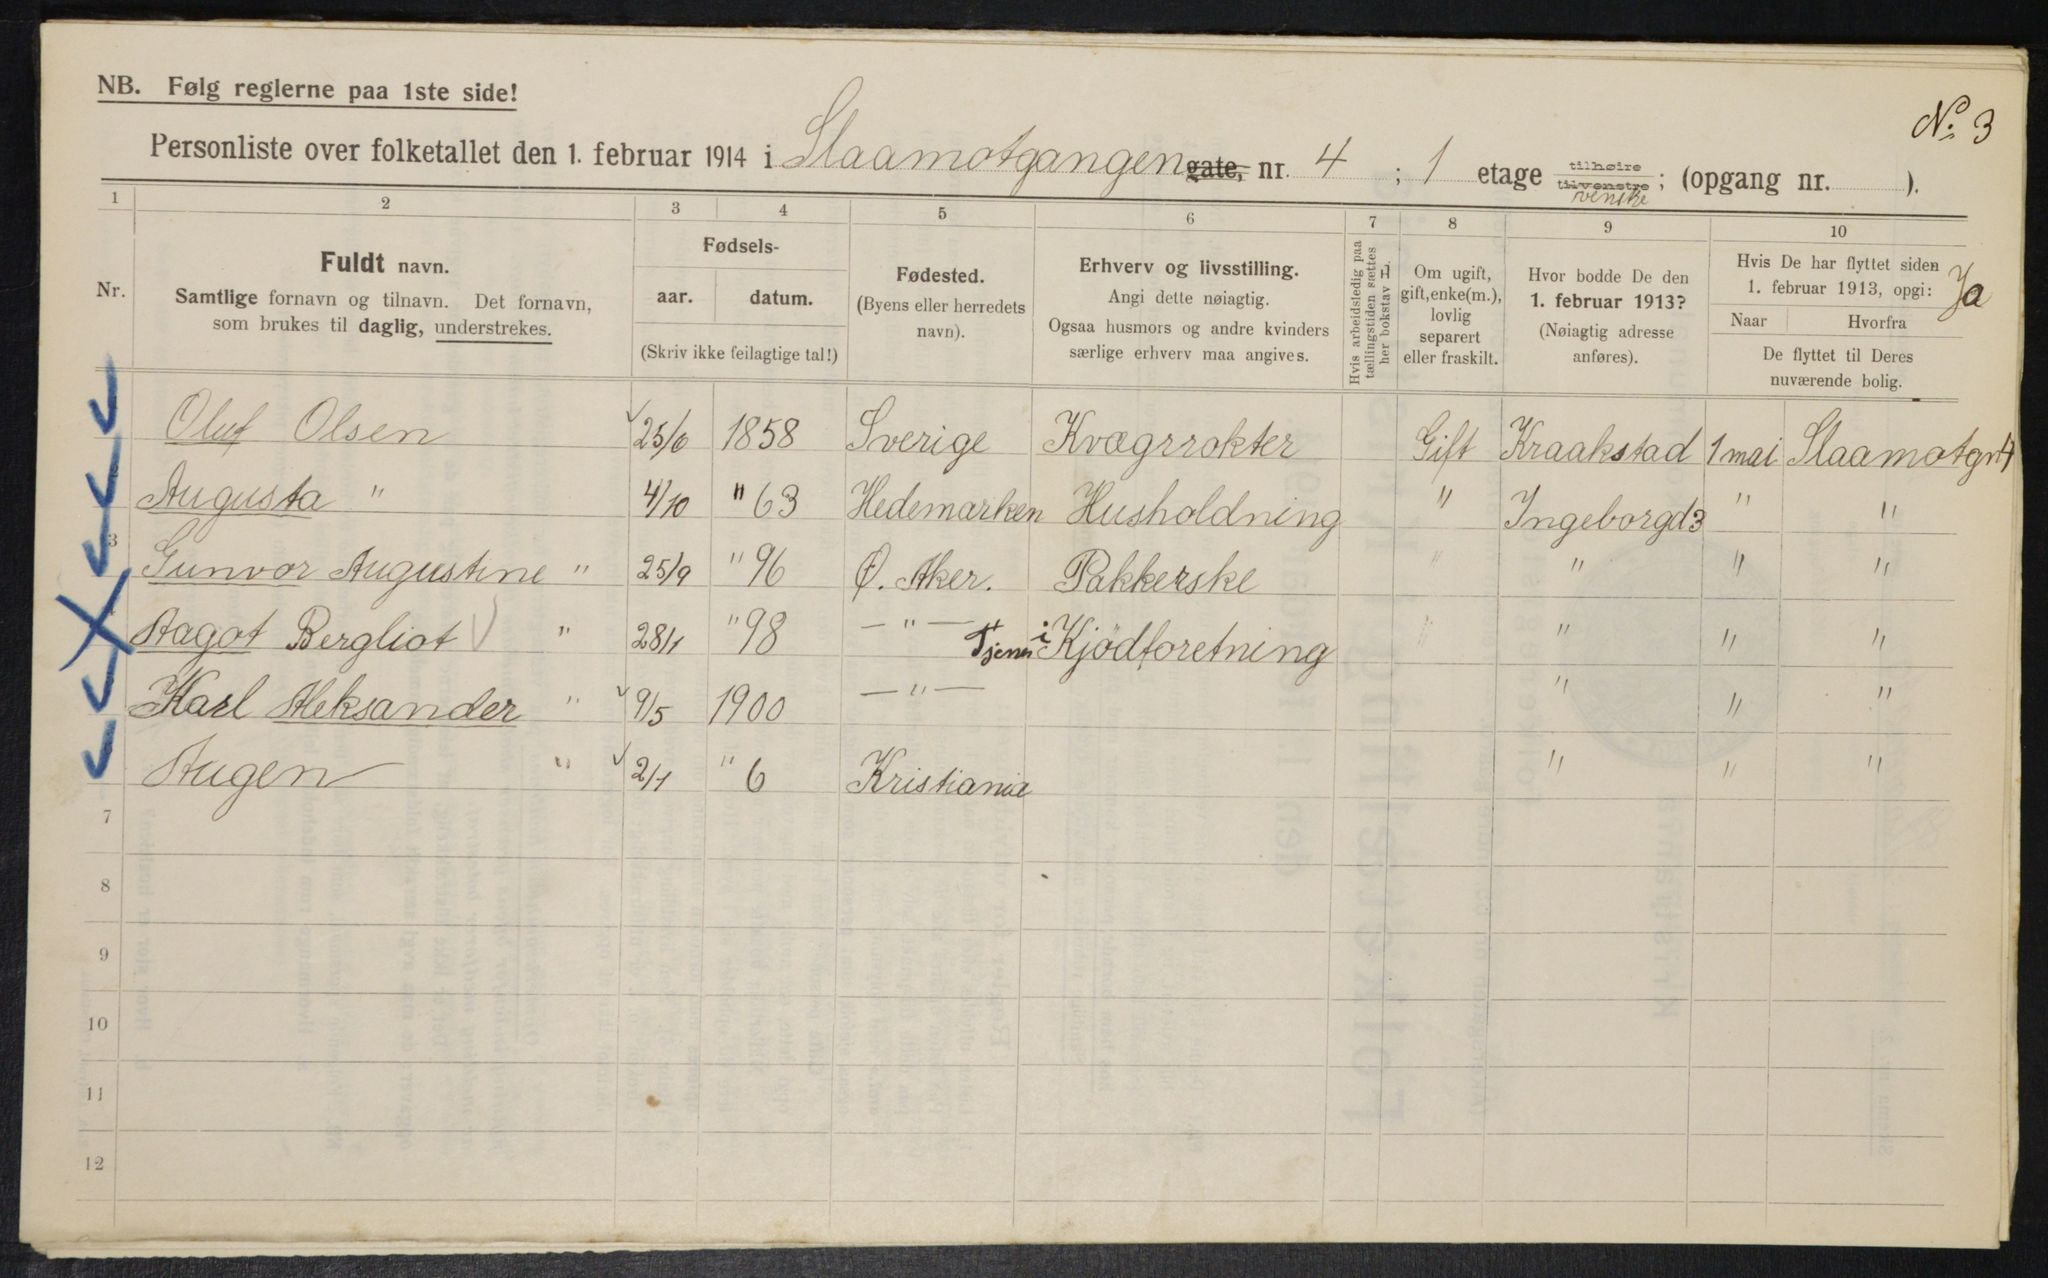 NB. Følg reglerne paa 1ste side!
No. 3
Personliste over folketallet den 1. februar 1914 i Slaamotgangen gate, nr. 4 ; 1 etage tilhøire tilvenstre venstre ; (opgang nr. ).
1 2 3 4 5 6 7 8 9 10
Nr.
Fuldt navn.
Samtlige fornavn og tilnavn. Det fornavn,
som brukes til daglig, understrekes.
Fødsels-
aar. datum.
(Skriv ikke feilagtige tal!)
Fødested.
(Byens eller herredets
navn).
Erhverv og livsstilling.
Angi dette nøiagtig.
Ogsaa husmors og andre kvinders
særlige erhverv maa angives.
Hvis arbeidsledig paa
tællingstiden sættes
her bokstav L.
Om ugift,
gift, enke(m.),
lovlig
separert
eller fraskilt.
Hvor bodde De den
1. februar 1913?
(Nøiagtig adresse
anføres).
Hvis De har flyttet siden
1. februar 1913, opgi: Ja
Naar Hvorfra
De flyttet til Deres
nuværende bolig.
Oluf Olsen 25/6 1858 Sverige Kvægrrokter Gift Kraakstad 1 mai Slaamotgn4
Augusta " 4/10 " 63 Hedemarken Husholdning " Ingeborgd3 " "
3 Gunvor Augustine " 25/9 " 96 Ø. Aker. Pakkerske " " " "
4 Aagot Bergliot " 28/1 " 98 — " — Tjener i Kjödforetning " " " "
Karl Aleksander " 9/5 1900 — " — " " "
Aagen " 2/1 " 6 Kristiania " " "
7
8
9
10
11
12